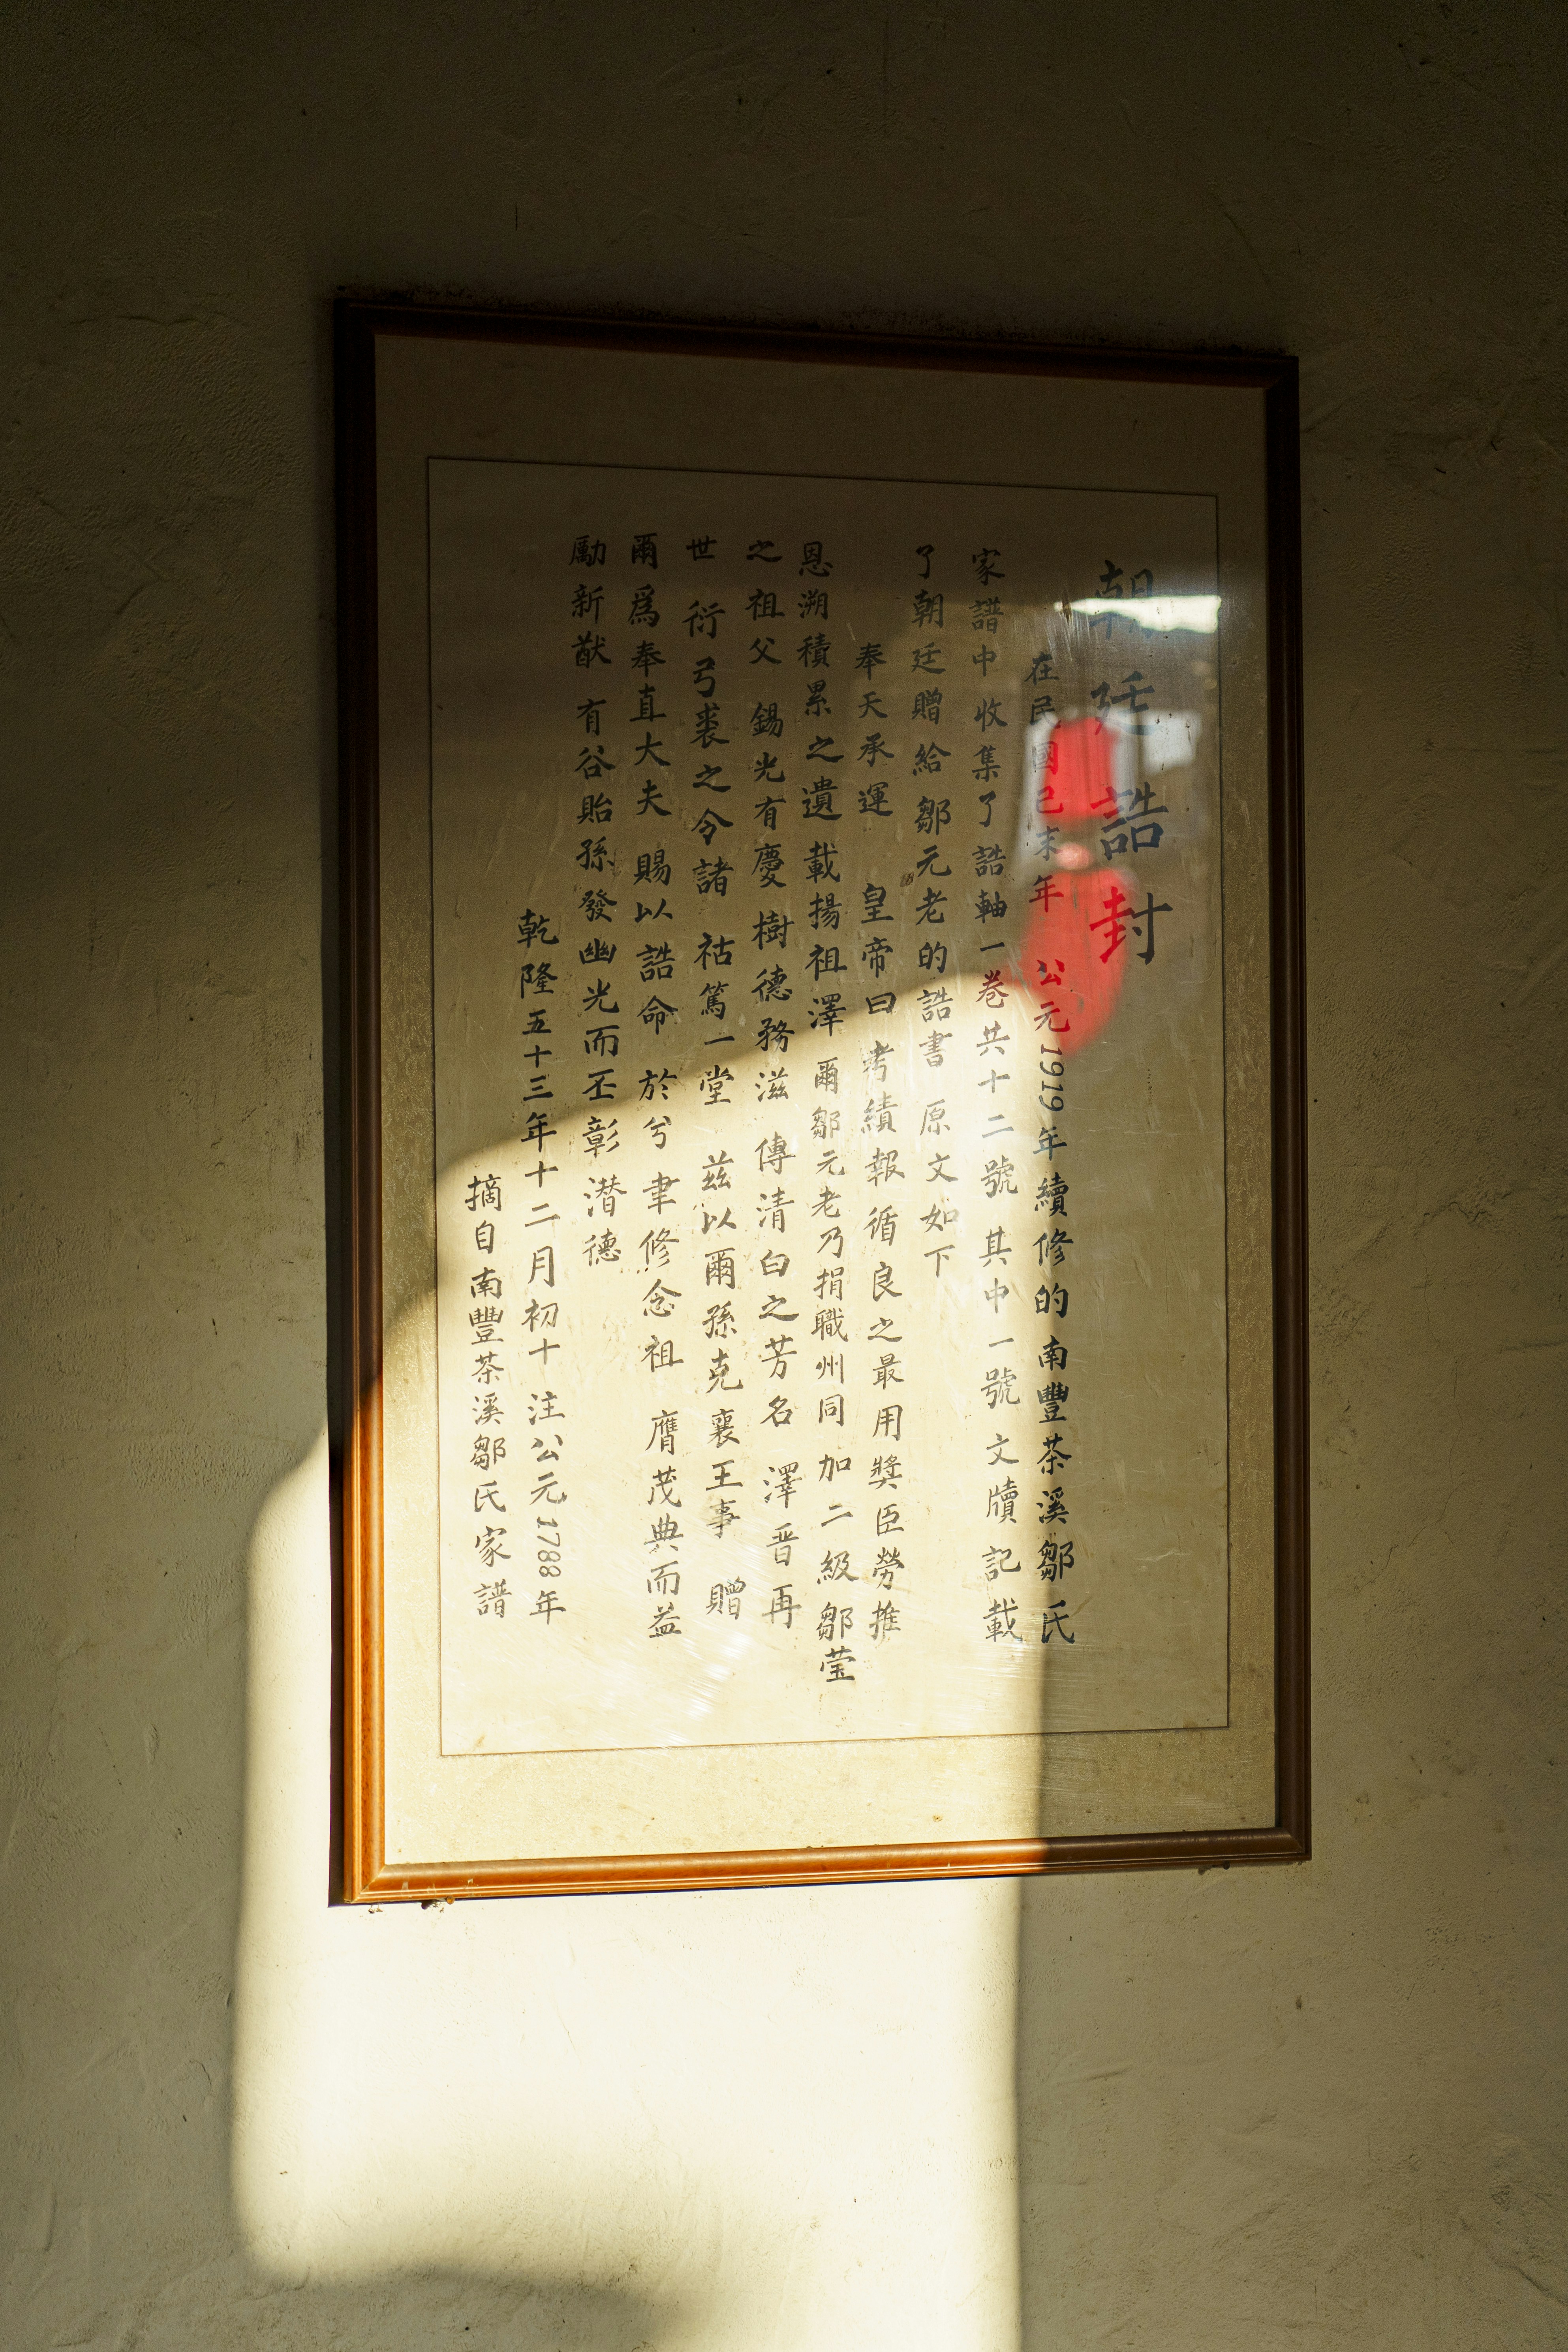 朝廷誥封
在民國己未年 公元1919年續修的南豐茶溪鄒氏
家譜中收集了誥軸一卷共十二號 其中一號文牘記載
了朝廷贈給鄒元老的誥書 原文如下
奉天承運 皇帝曰 考績報循良之最用獎臣勞推
恩溯積累之遺載揚祖澤 爾鄒元老乃捐職州同加二級鄒莹
之祖父 錫光有慶樹德務滋 傳清白之芳名 澤晋再
世 衍弓裘之令諸 祜篤一堂 茲以爾孫克襄王事 贈
爾爲奉直大夫 賜以誥命 於兮 聿修念祖 膺茂典而益
勵新猷 有谷貽孫發幽光而丕彰潛德
乾隆五十三年十二月初十 注公元1788年
摘自南豐茶溪鄒氏家譜